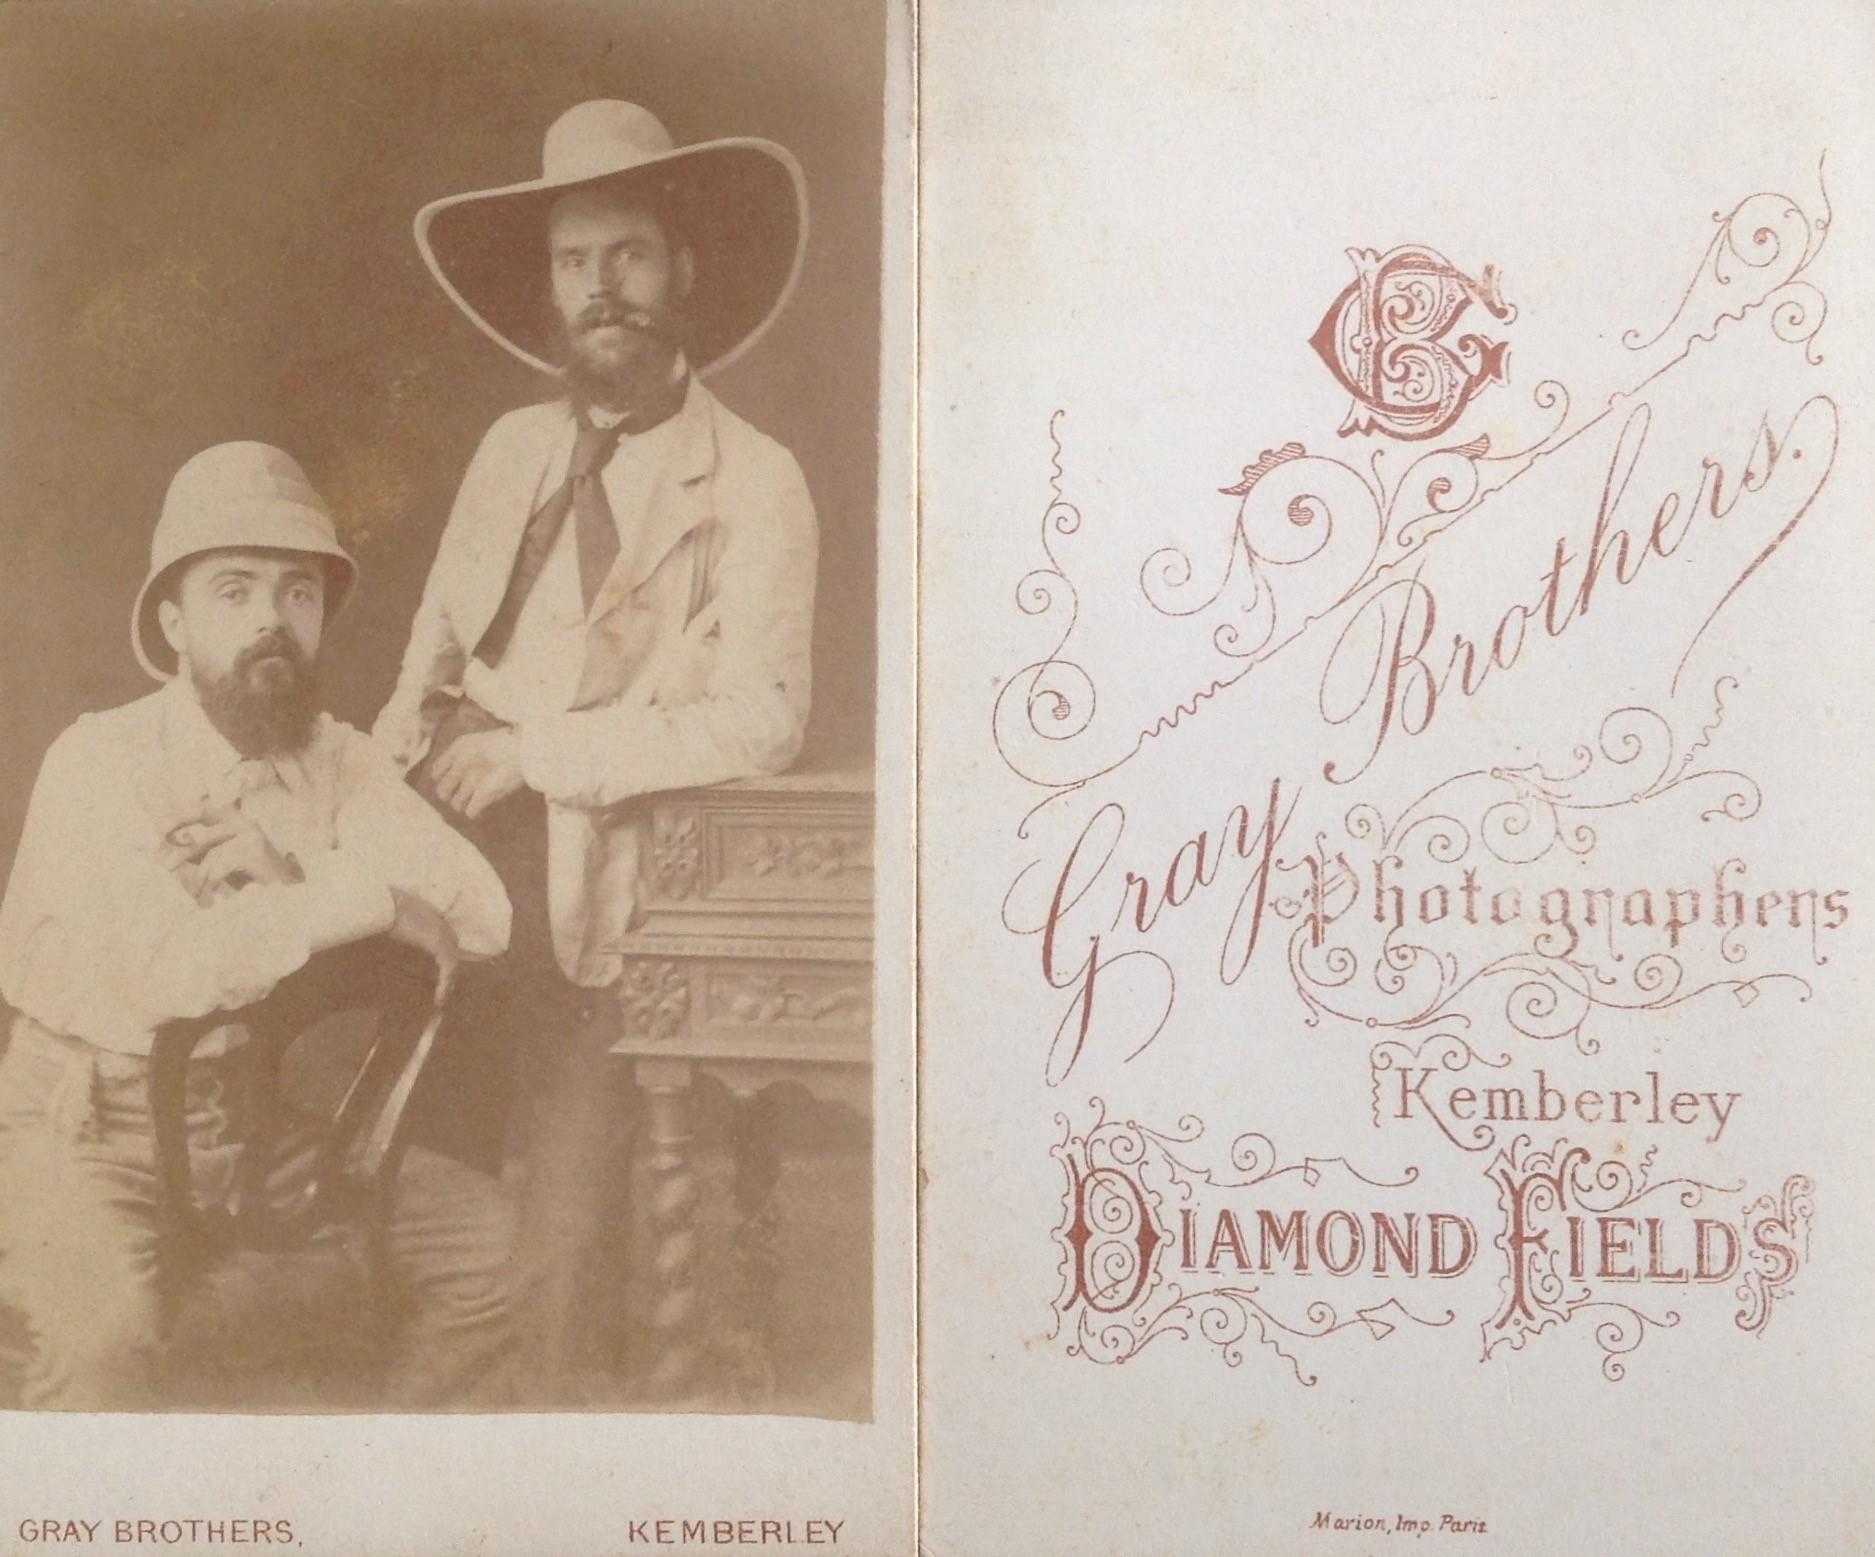 GRAY BROTHERS, KEMBERLEY
GB
Gray Brothers.
Photographers
Kemberley
DIAMOND FIELDS
Marion, Imp. Paris